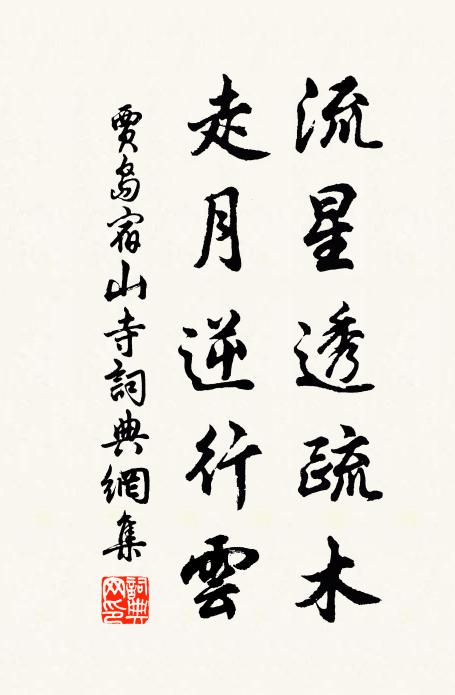 流星透疏木
走月逆行雲
賈島宿山寺詞典網集
詞典网印